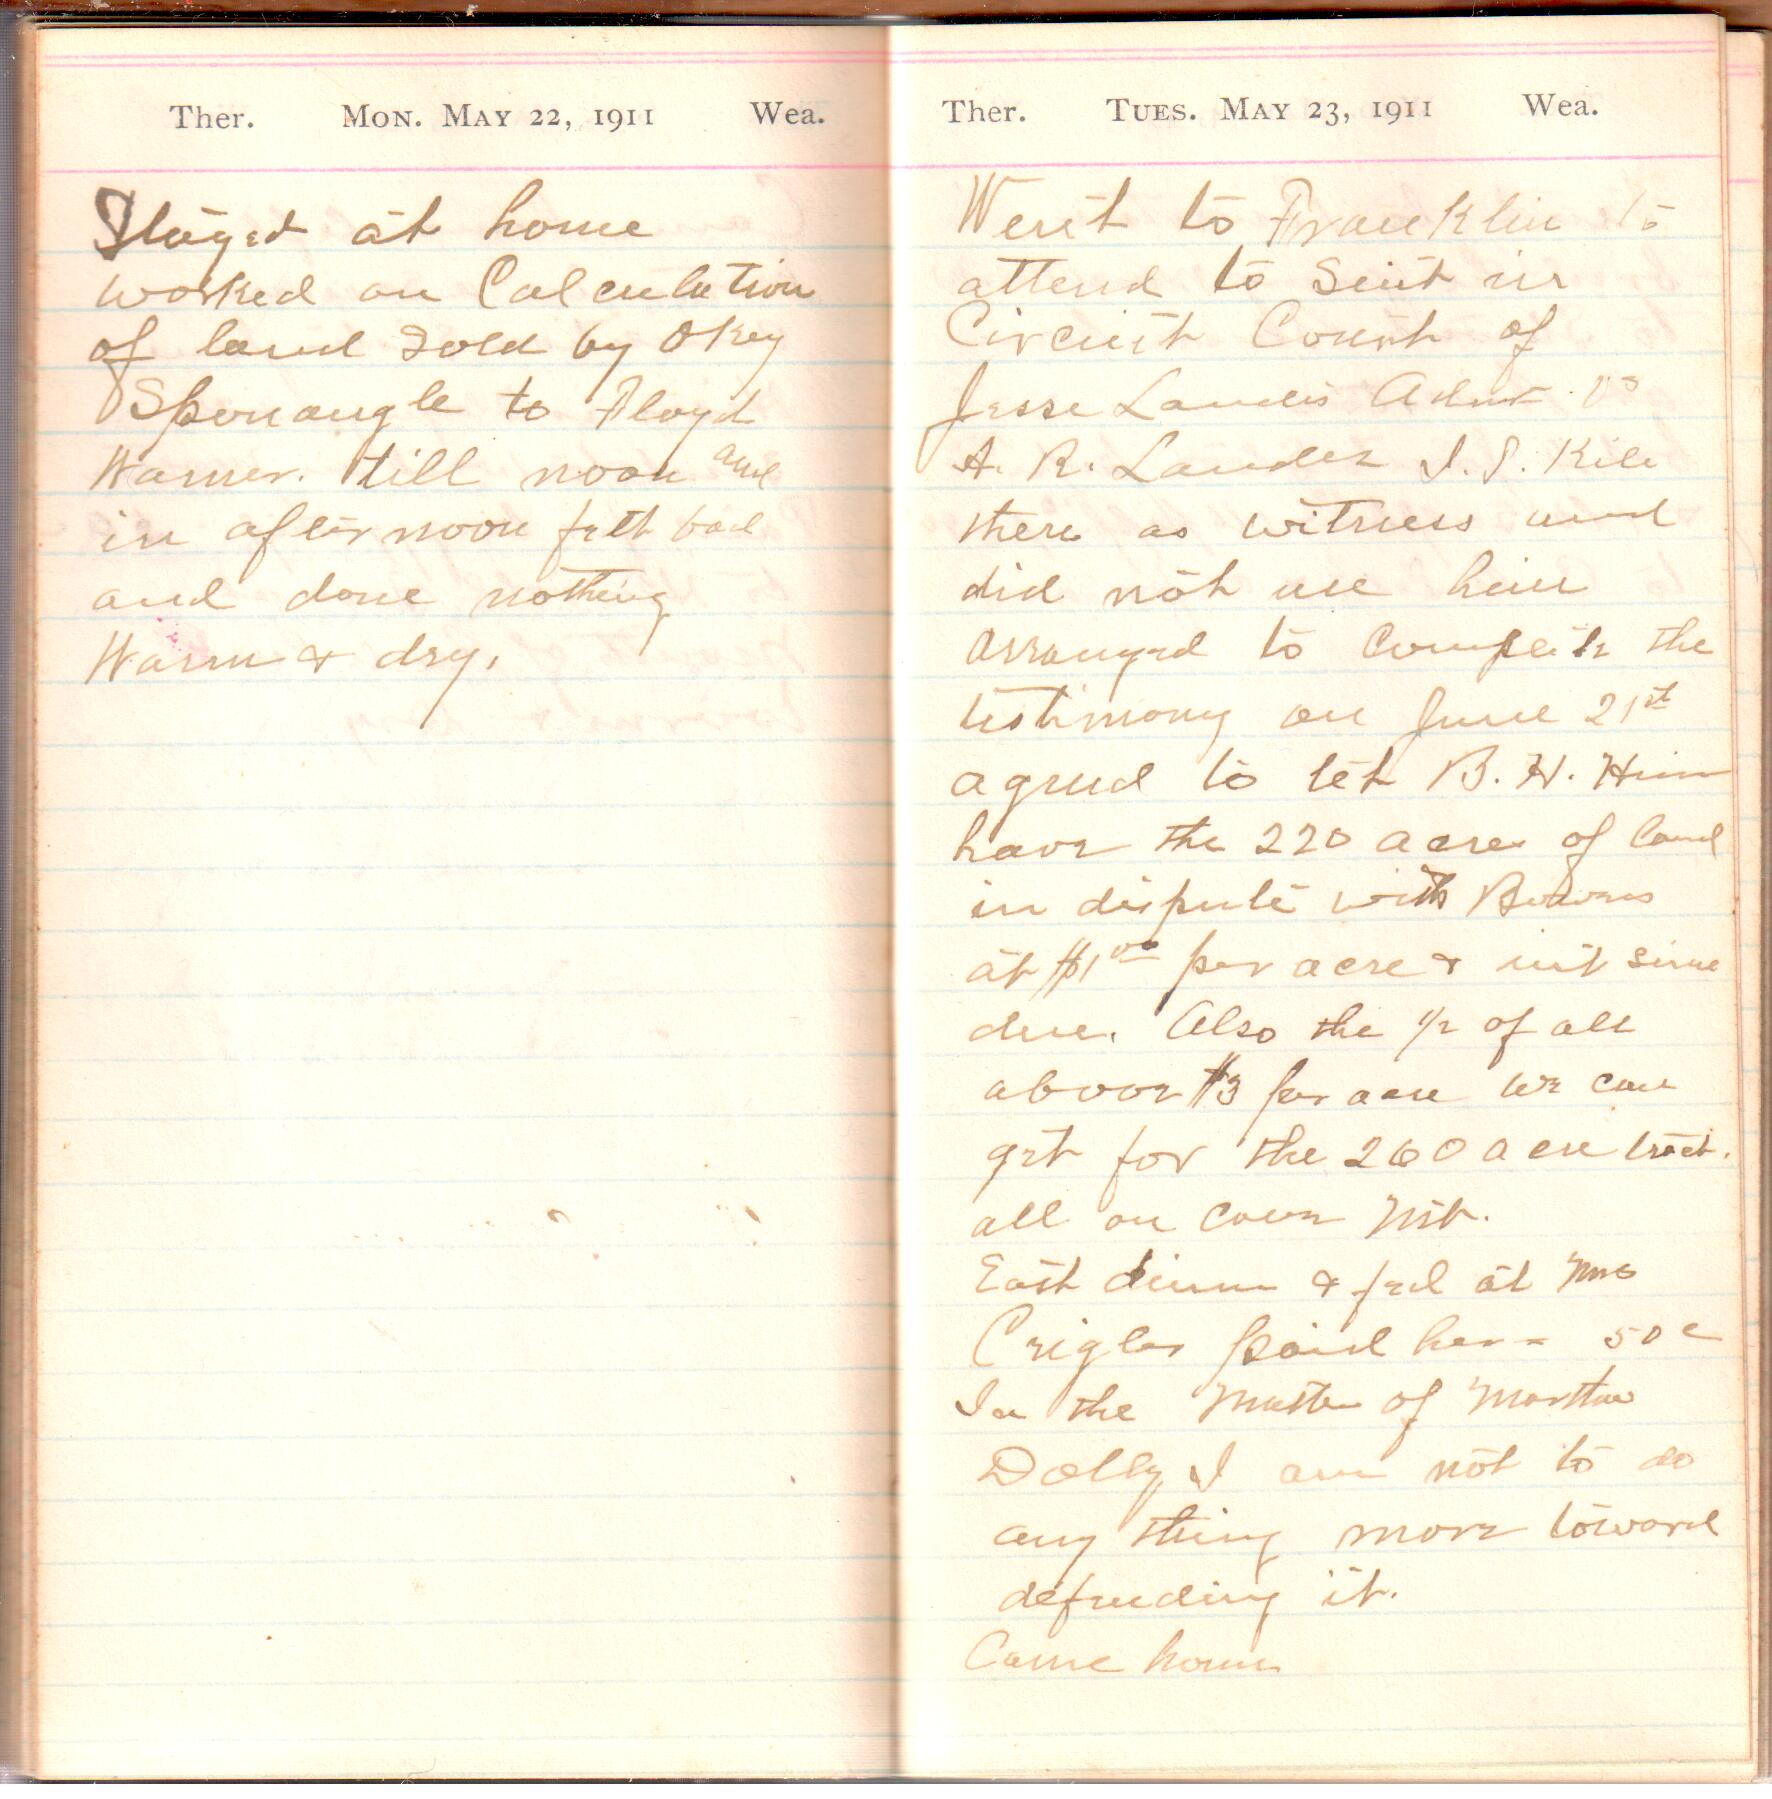 Ther. Mon. May 22, 1911 Wea.
Stayed at home
worked on Calculation
of land sold by Okey
Sponaugle to Floyd
Warner. till noon and
in after noon felt bad
and done nothing
Warm & dry.
Ther. Tues. May 23, 1911 Wea.
Went to Franklin to
attend to Suit in
Circuit Court of
Jesse Landis Admr vs
A. R. Landes I. S. Kile
there as witness and
did not use him
arranged to complete the
testimony on June 21st
agreed to let B. H. Hiner
have the 220 acres of land
in dispute with Bowers
at $1 00 per acre & int since
due. Also the 1/2 of all
above $3 per acre we can
get for the 260 acre tract.
all on Cave Mt.
Eat dinner & fed at Mrs
Crigler paid her = 50c
In the Matter of Martha
Dolly I am not to do
any thing more toward
defending it.
Came home